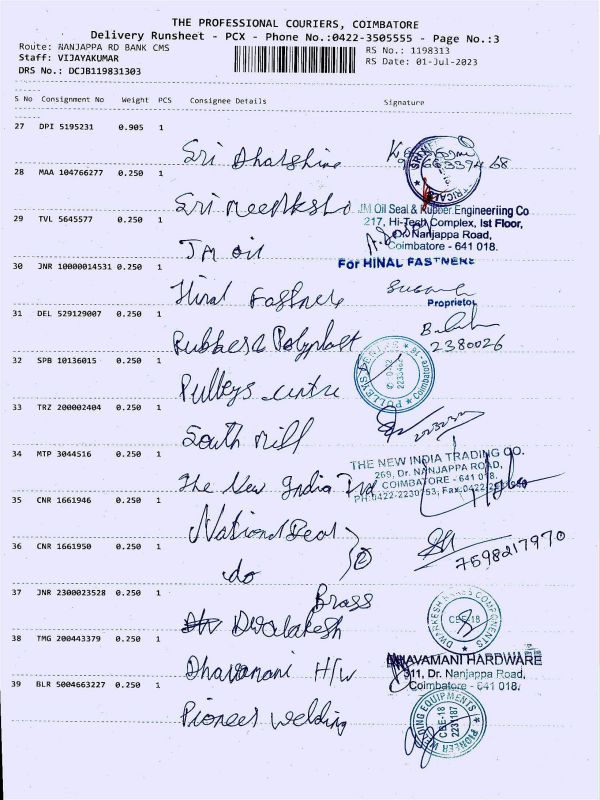 THE PROFESSIONAL COURIERS, COIMBATORE
Delivery Runsheet - PCX - Phone No.:0422-3505555 - Page No.:3
Route: NANJAPPA RD BANK CMS
RS No.: 1198313
Staff: VIJAYAKUMAR
RS Date: 01-Jul-2023
DRS No.: DCJB119831303
S No Consignment No Weight PCS Consignee Details Signature
27 DPI 5195231 0.905 1
Sri Dharshine
28 MAA 104766277 0.250 1
Sri meenkshi
29 TVL 5645577 0.250 1
JM oil
JM Oil Seal & Rubber Engineeriing Co
217, Hi-Tech Complex, Ist Floor,
Dr. Nanjappa Road,
Coimbatore - 641 018.
30 JNR 10000014531 0.250 1
For HINAL FASTNERS
Hinal Fastners
Proprietor
31 DEL 529129007 0.250 1
Rubbers & Polyplast
2380026
32 SPB 10136015 0.250 1
Pulleys centre
PULLEYS CENTRE Coimbatore - 18
33 TRZ 200002404 0.250 1
South mill
34 MTP 3044516 0.250 1
The New India Trd
THE NEW INDIA TRADING CO.
269, Dr. NANJAPPA ROAD,
COIMBATORE - 641 018,
PH:0422-2230753, Fax:0422-
35 CNR 1661946 0.250 1
National Bear
36 CNR 1661950 0.250 1
do
2
7598217970
37 JNR 2300023528 0.250 1
Brass
Dwalakesh
DWARAKESH BRASS COMPONENTS
CBE-18
38 TMG 200443379 0.250 1
Dhavamani H/W
DHAVAMANI HARDWARE
311, Dr. Nanjappa Road,
Coimbatore - 641 018.
39 BLR 5004663227 0.250 1
Pioneer welding
PIONEER WELDING EQUIPMENTS
CBE-18
2231187